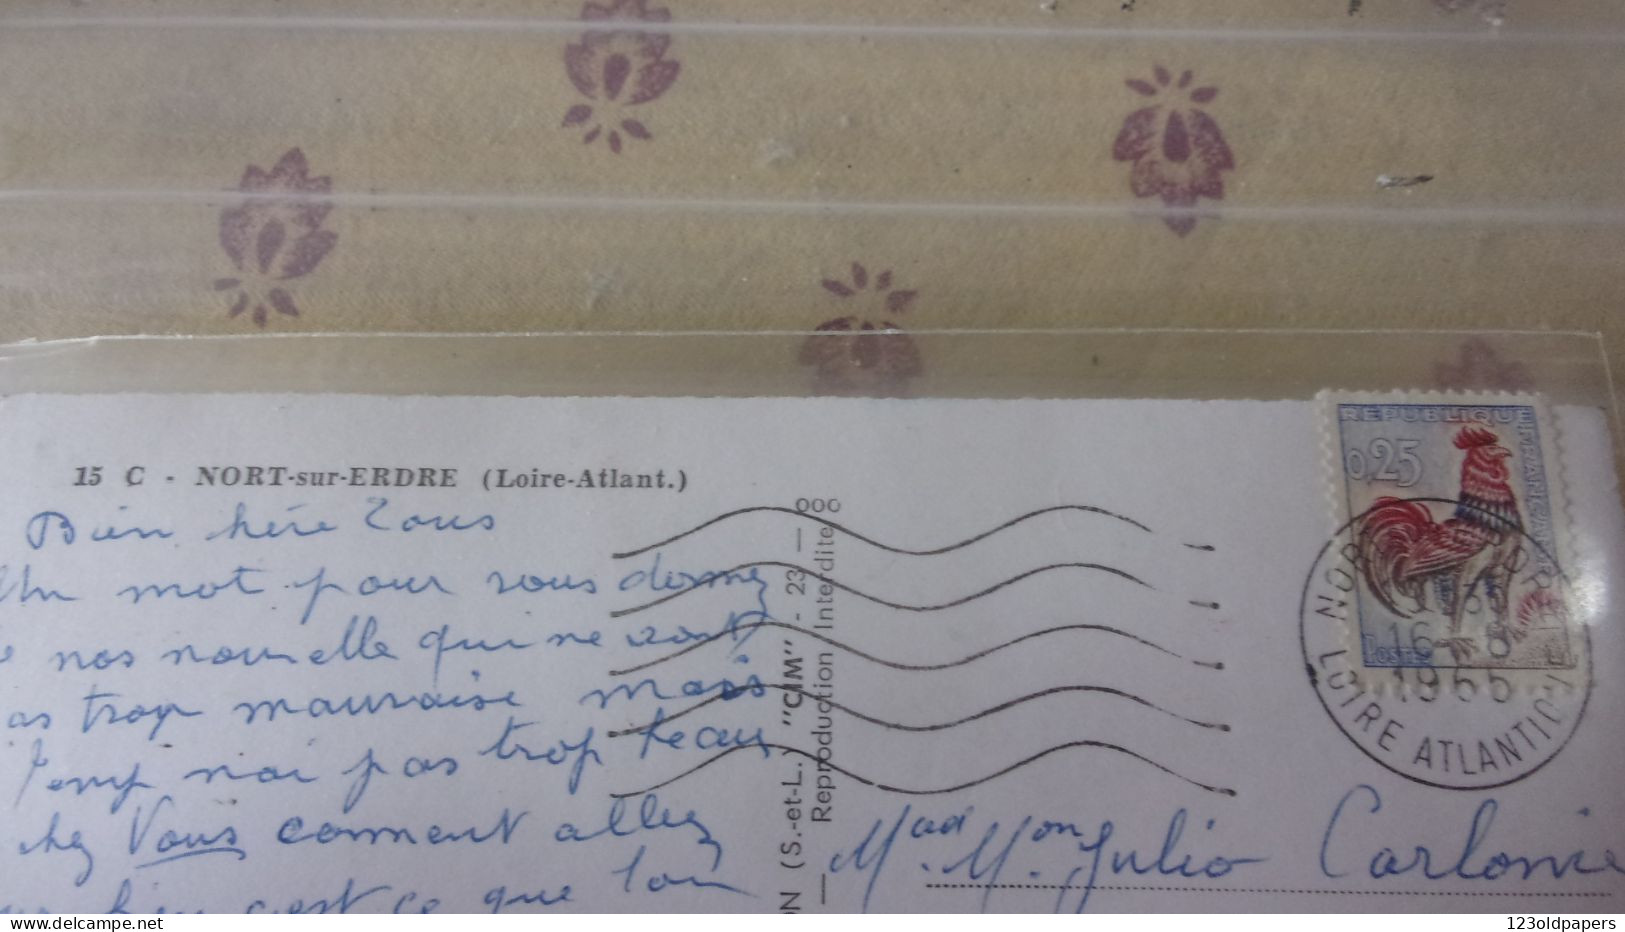 15 C - NORT-sur-ERDRE (Loire-Atlant.)
Bien hére Tous
Un mot pour vous donné
nos nouvelle qui ne sont
as trop mauvaise mais
temp n'ai pas trop beau
chez Vous comment allez
bien c'est ce que l'on
ON (S.-et-L.) "CIM" - 23 — 000
— Reproduction Interdite
REPUBLIQUE FRANCAISE
0,25
POSTES
NORT ERDRE
16
1965
LOIRE ATLANTIQUE
Mad. Mon Julio Carlonie
123oldpapers